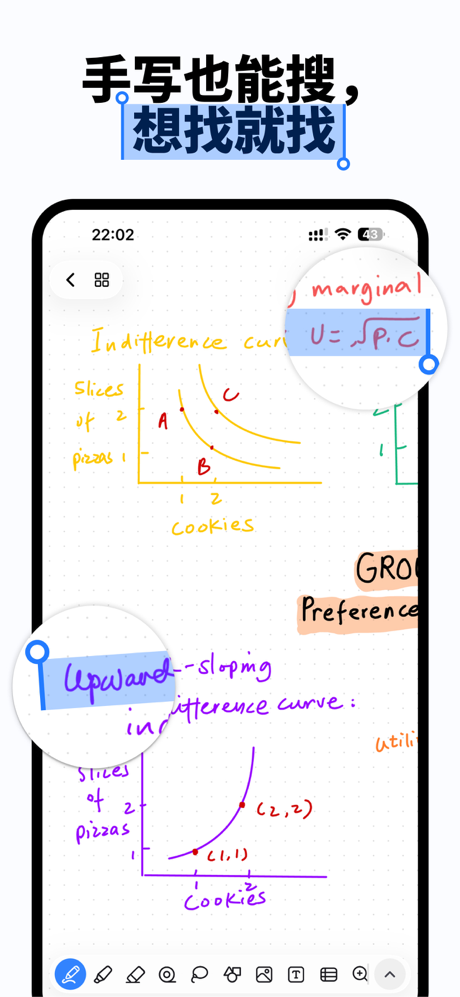 手写也能搜，
想找就找
22:02
43
marginal
U = √P·C
Indifference cur
Slices
of
pizzas
2
1
A
C
B
1 2
Cookies
2
1
GROU
Preference
Upward-sloping
indifference curve:
utili
Slices
of
pizzas
2
1
(2,2)
(1,1)
1 2
Cookies
T